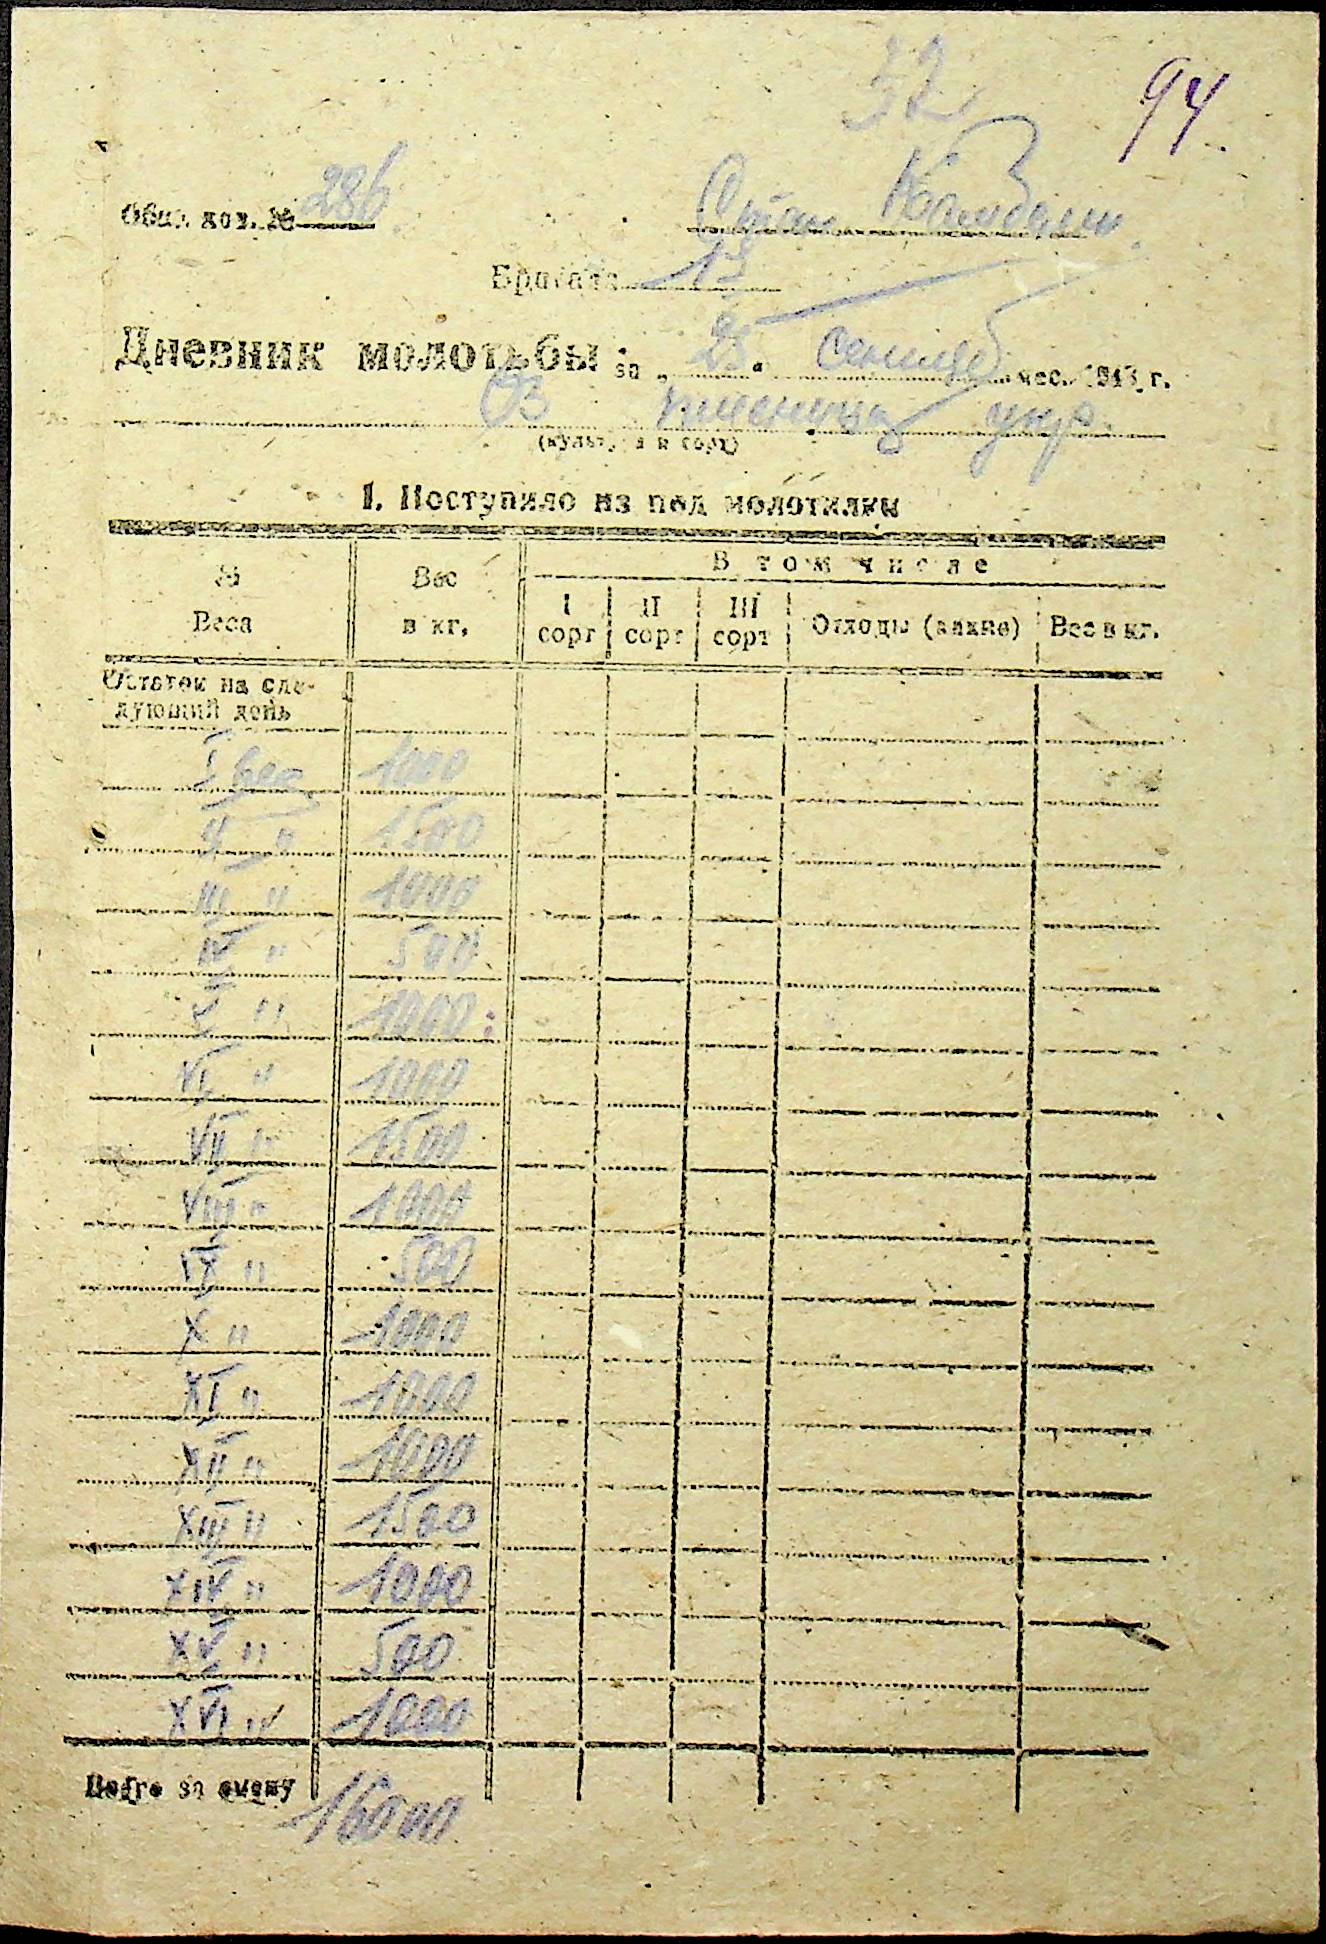 32
94.
Общ. хоз. № 286
Стан Комбайн
Бригада 13
Дневник молотьбы за „25“ сентяб мес. 1943 г.
ОЗ пшеница укр.
(культура и сорт)
I. Поступило из под молотилки
№ Веса Вес в кг. В том числе
I сорт II сорт III сорт Отходы (какие) Вес в кг.
Остаток на сле-
дующий день
I вес 1000
II " 1500
III " 1000
IV " 500
V " 1000
VI " 1000
VII " 1500
VIII " 1000
IX " 500
X " 1000
XI " 1000
XII " 1000
XIII " 1500
XIV " 1000
XV " 500
XVI " 1000
Всего за смену 16000